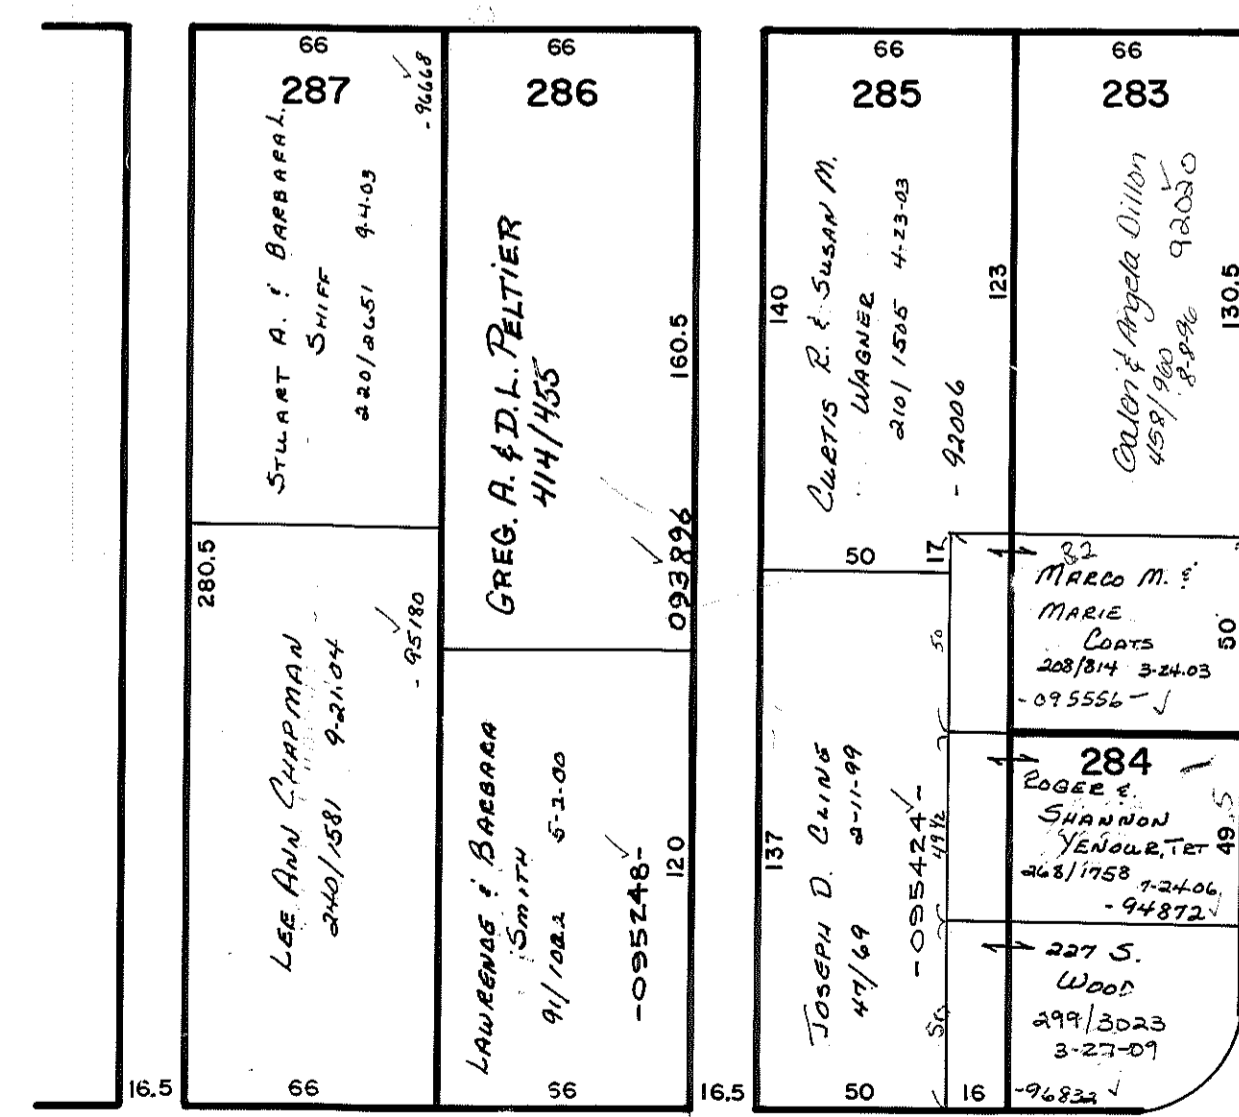 66
287
-96668
STUART A. & BARBARA L.
SHIFF
220/2651 9-4-03
280.5
LEE ANN CHAPMAN
240/1581 9-21-04
-95180
16.5
66
66
286
GREG. A. & D.L. PELTIER
414/455
160.5
093896
LAWRENCE & BARBARA
SMITH
91/1022 5-2-00
-095248-
120
56
16.5
66
285
140
CURTIS R. & SUSAN M.
WAGNER
210/1505 4-23-03
-92006
123
50
17
137
JOSEPH D. CLINE
47/69 2-11-99
-095424-
50
49 1/2
50
50
16
66
283
Galen & Angela Dillon
458/960 92020
8-8-96
130.5
82
MARCO M. &
MARIE
COATS
208/814 3-24-03
-095556-
50
284
ROGER &
SHANNON
YENOUR, TRT
268/1758
7-24-06
-94872
49.5
227 S.
WOOD
299/3023
3-27-09
-96832